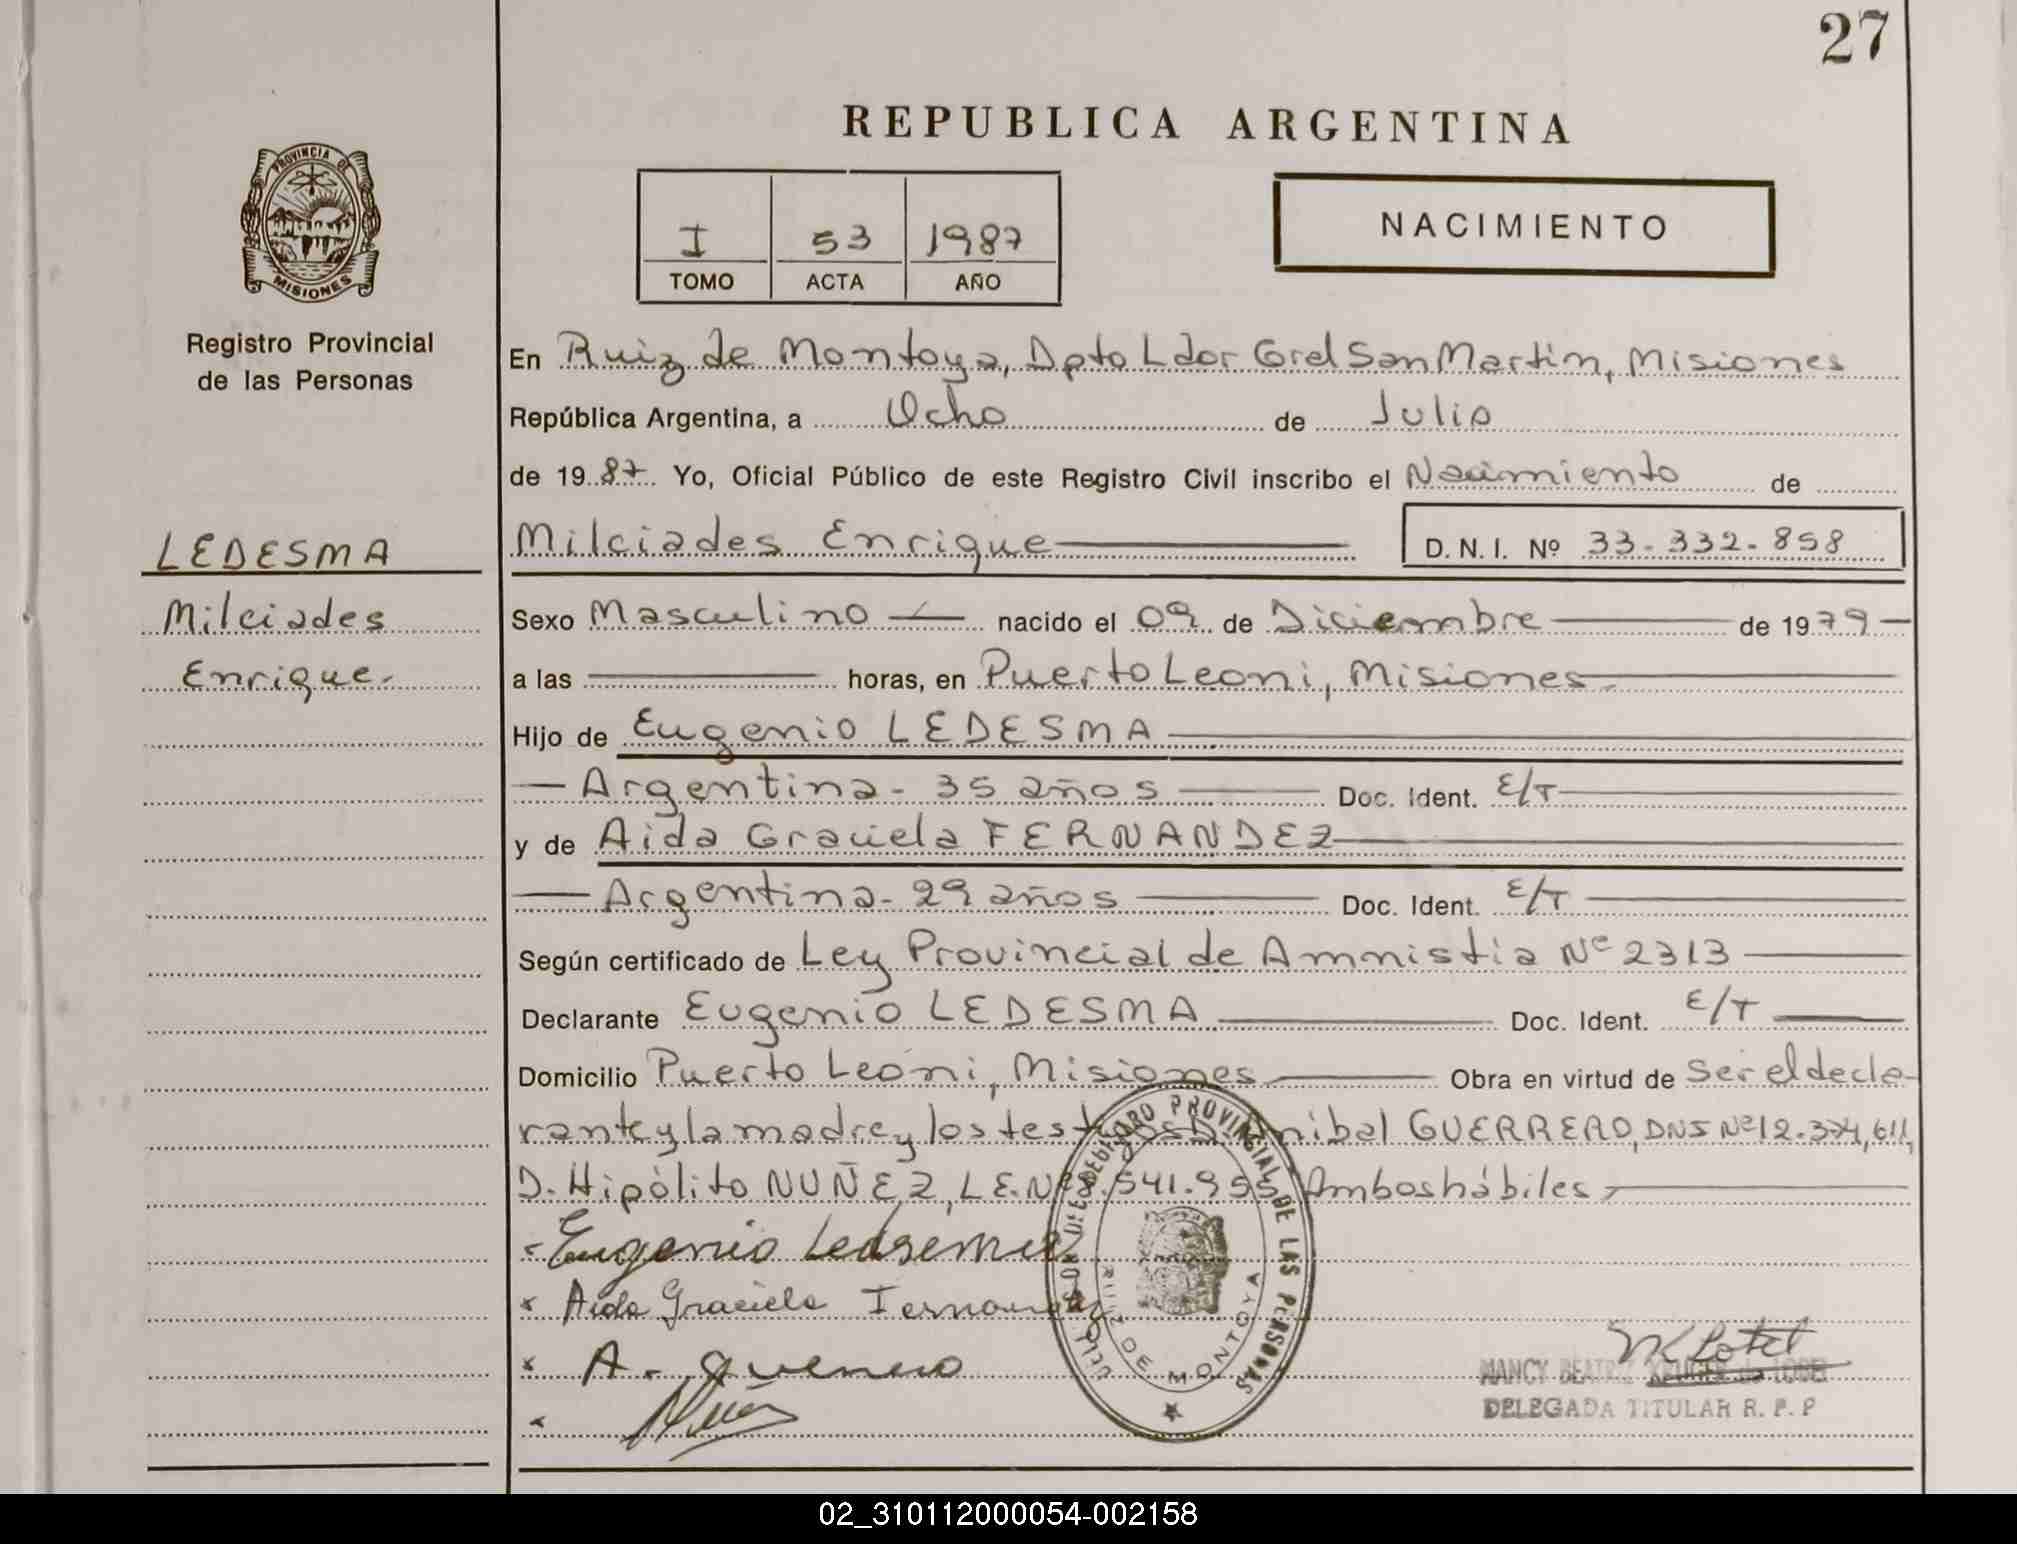 27
REPUBLICA ARGENTINA
PROVINCIA DE
MISIONES
I 53 1987
TOMO ACTA AÑO
NACIMIENTO
Registro Provincial
de las Personas
En Ruiz de Montoya, Dpto Ldor Gral San Martín, Misiones
República Argentina, a Ocho de Julio
de 1987 Yo, Oficial Público de este Registro Civil inscribo el Nacimiento de
LEDESMA
Milciades
Enrique.
Milciades Enrique
D. N. I. Nº 33.332.858
Sexo Masculino nacido el 09 de Diciembre de 1979
a las horas, en Puerto Leoni, Misiones
Hijo de Eugenio LEDESMA
Argentina - 35 años Doc. Ident. E/T
y de Aida Graciela FERNANDEZ
Argentina - 29 años Doc. Ident. E/T
Según certificado de Ley Provincial de Amnistía Nº 2313
Declarante Eugenio LEDESMA Doc. Ident. E/T
Domicilio Puerto Leoni, Misiones Obra en virtud de ser el decla-
rante y la madre y los testigos D. Anibal GUERRERO, DNI Nº 12.374,611,
D. Hipólito NUÑEZ, L.E. Nº 8.541.955 Ambos hábiles
Eugenio Ledesema
x Aida Graciela Fernandez
x A. Guerrero
REGISTRO PROVINCIAL DE LAS PERSONAS
RUIZ DE MONTOYA
NANCY BEATRIZ
DELEGADA TITULAR R. P. P
02_310112000054-002158